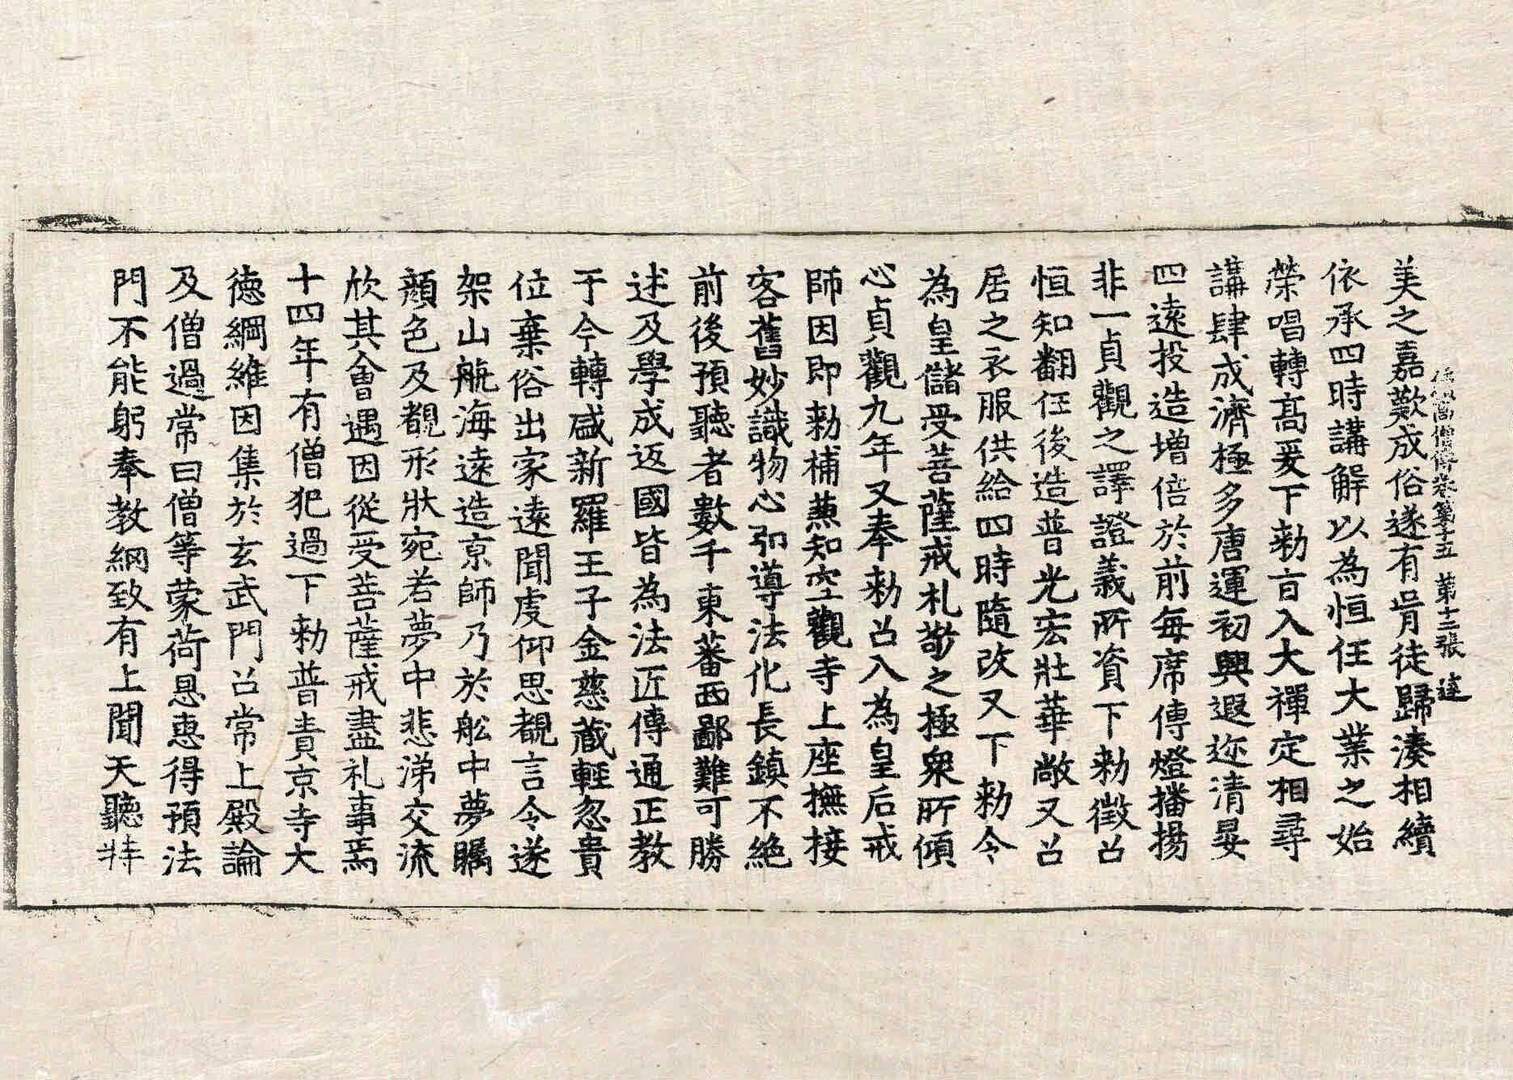 續高僧傳卷第十五 第十二張 達
美之嘉歎成俗遂有肯徒歸湊相續
依承四時講解以為恒任大業之始
榮唱轉高爰下勑旨入大禪定相尋
講肆成濟極多唐運初興遐迩清晏
四遠投造增倍於前每席傳燈播揚
非一貞觀之譯證義所資下勑徵召
恒知翻任後造普光宏壯華敞又召
居之衣服供給四時隨改又下勑令
為皇儲受菩薩戒礼敬之極衆所傾
心貞觀九年又奉勑召入為皇后戒
師因即勑補兼知空觀寺上座撫接
客舊妙識物心弘導法化長鎮不絶
前後預聽者數千東蕃西鄙難可勝
述及學成返國皆為法匠傳通正教
于今轉盛新羅王子金慈藏輕忽貴
位棄俗出家遠聞虔仰思覩言令遂
架山航海遠造京師乃於舩中夢矚
顔色及覩形狀宛若夢中悲涕交流
欣其會遇因從受菩薩戒盡礼事焉
十四年有僧犯過下勑普責京寺大
德綱維因集於玄武門召常上殿論
及僧過常曰僧等蒙荷恩惠得預法
門不能躬奉教綱致有上聞天聽特